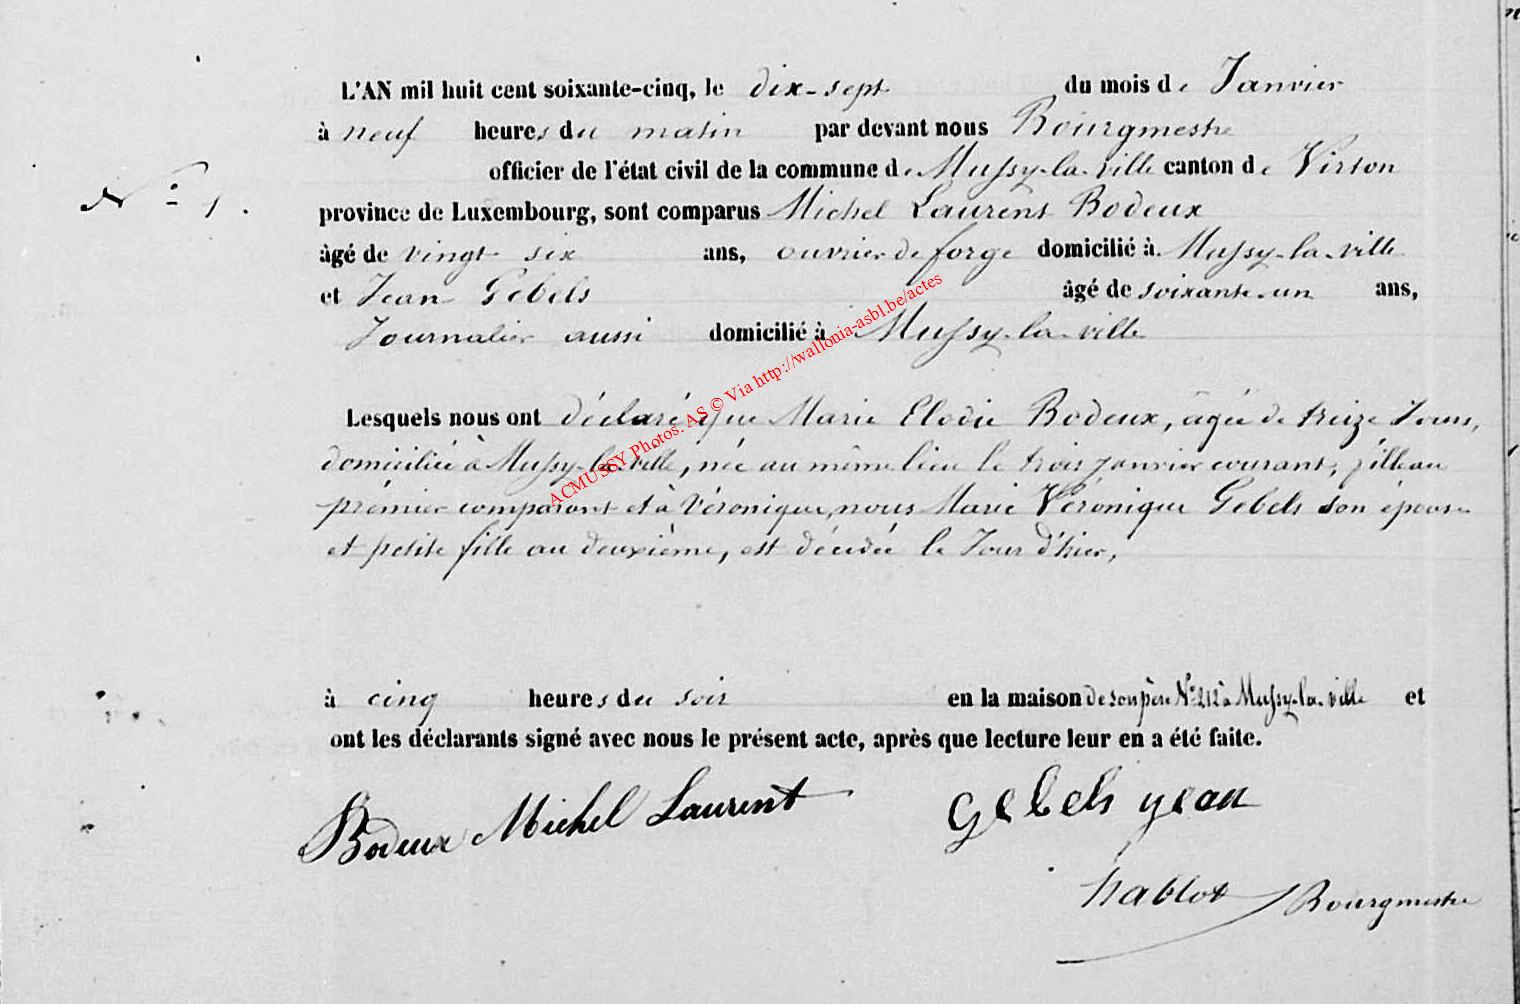 L'AN mil huit cent soixante-cinq, le dix-sept du mois de Janvier
à neuf heures du matin par devant nous Bourgmestre
officier de l'état civil de la commune de Mussy-la-ville canton de Virton
N° 1.
province de Luxembourg, sont comparus Michel Laurent Bodeux
âgé de vingt six ans, ouvrier de forge domicilié à Mussy-la-ville
et Jean Gebels âgé de soixante-un ans,
Journalier aussi domicilié à Mussy-la-ville
Lesquels nous ont déclaré que Marie Elodie Bodeux, âgée de treize Jours,
domiciliée à Mussy-la-ville, née au même lieu le trois janvier courant, fille au
prémier comparant et à Véronique, nous Marie Véronique Gebels son épouse
et petite fille au deuxième, est décédée le Jour d'hier,
à cinq heures du soir en la maison de son père N° 212 à Mussy-la-ville et
ont les déclarants signé avec nous le présent acte, après que lecture leur en a été faite.
Bodeux Michel Laurent Gebels jean
hablot Bourgmestre
ACMUSSY Photos: AS © Via http://wallonia-asbl.be/actes